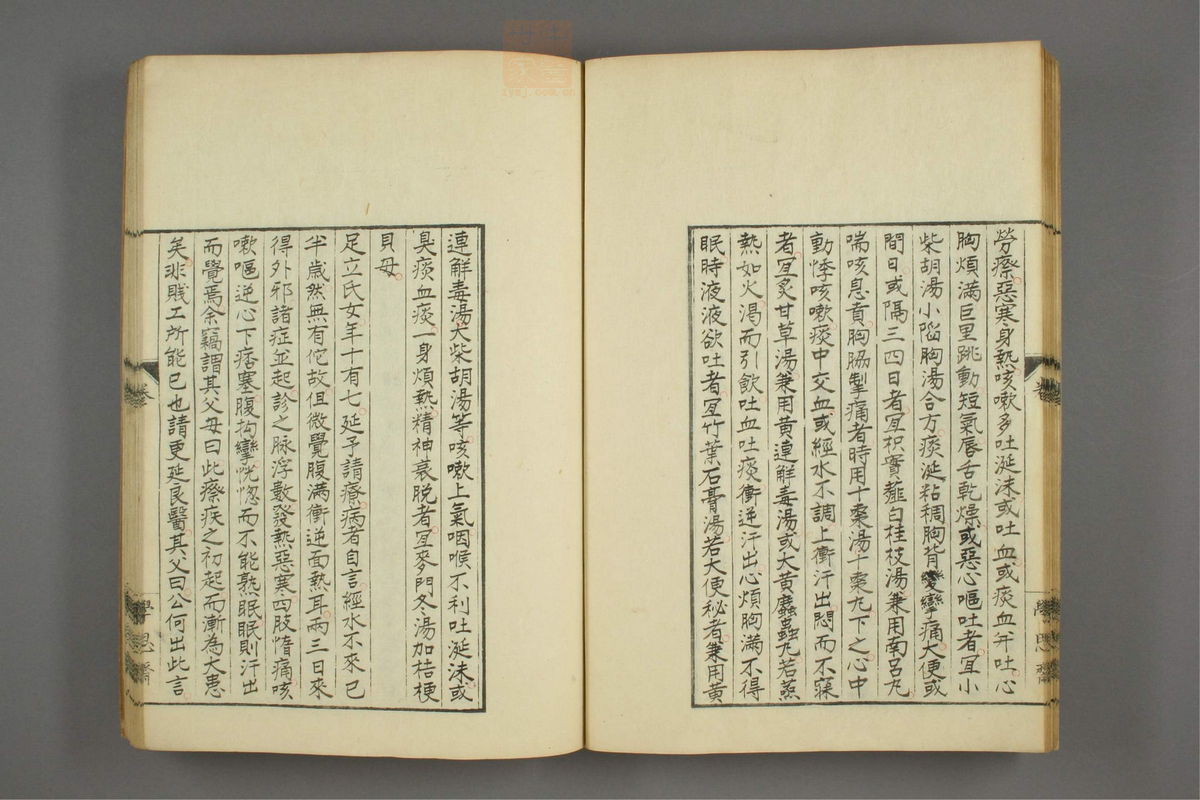 勞瘵惡寒身熱咳嗽多吐涎沫或吐血或痰血并吐心
胸煩滿巨里跳動短氣唇舌乾燥或惡心嘔吐者宜小
柴胡湯小陷胸湯合方痰涎粘稠胸背攣痛大便或
間日或隔三四日者宜枳實薤白桂枝湯兼用南呂丸
喘咳息賁胸脇掣痛者時用十棗湯十棗丸下之心中
動悸咳嗽痰中交血或經水不調上衝汗出悶而不寐
者宜炙甘草湯兼用黃連解毒湯或大黃䗪蟲丸若蒸
熱如火渴而引飲吐血吐痰衝逆汗出心煩胸滿不得
眠時液液欲吐者宜竹葉石膏湯若大便秘者兼用黃
連解毒湯大柴胡湯等咳嗽上氣咽喉不利吐涎沫或
臭痰血痰一身煩熱精神衰脫者宜麥門冬湯加桔梗
貝母
足立氏女年十有七延予請療病者自言經水不來已
半歲然無有佗故但微覺腹滿衝逆面熱耳兩三日來
得外邪諸症並起診之脉浮數發熱惡寒四肢惰痛咳
嗽嘔逆心下痞塞腹拘攣恍惚而不能熟眠眠則汗出
而覺焉余竊謂其父母曰此瘵疾之初起而漸為大患
矣非賤工所能已也請更延良醫其父曰公何出此言
卷
學思齋